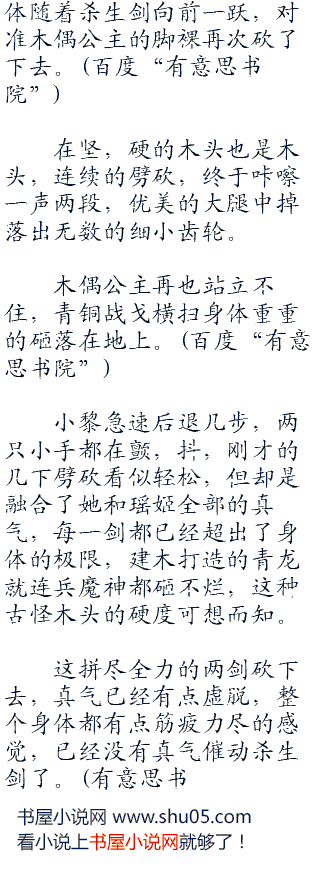 体随着杀生剑向前一跃，对
准木偶公主的脚裸再次砍了
下去。（百度“有意思书
院”）
在坚，硬的木头也是木
头，连续的劈砍，终于咔嚓
一声两段，优美的大腿中掉
落出无数的细小齿轮。
木偶公主再也站立不
住，青铜战戈横扫身体重重
的砸落在地上。（百度“有意
思书院”）
小黎急速后退几步，两
只小手都在颤，抖，刚才的
几下劈砍看似轻松，但却是
融合了她和瑶姬全部的真
气，每一剑都已经超出了身
体的极限，建木打造的青龙
就连兵魔神都砸不烂，这种
古怪木头的硬度可想而知。
这拼尽全力的两剑砍下
去，真气已经有点虚脱，整
个身体都有点筋疲力尽的感
觉，已经没有真气催动杀生
剑了。（有意思书
书屋小说网 www.shu05.com
看小说上书屋小说网就够了！